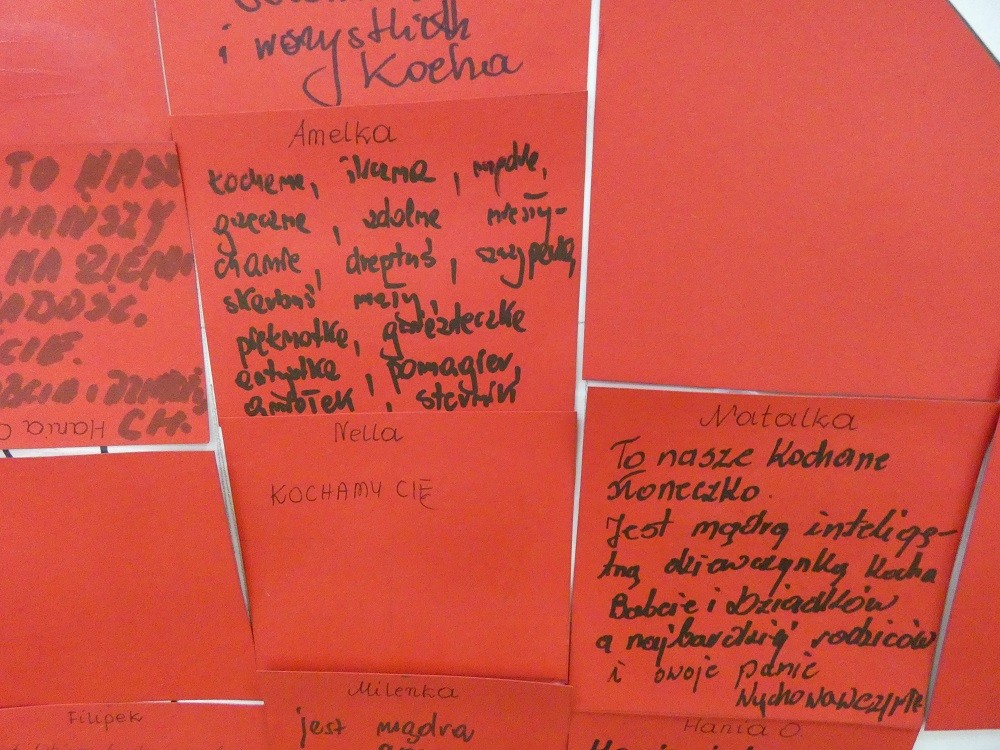 i wszystkich
Kocha
Amelka
kochana, ikuma, mądra,
grzeczna, zdolna niesły-
chanie, dreptuś,
skarbuś mały,
pięknotka, gwiazdeczka
artystka, pomagier,
aniołek, sternik
TO NASZ
NA ZIEMI
RADOŚĆ.
CIE.
CH.
Hania C
Nella
KOCHAMY CIĘ
Natalka
To nasze Kochane
słoneczko.
Jest mądrą intelige-
tną dziewczynką kocha
Babcie i Dziadków
a najbardziej rodziców
i swoje panie
Wychowawczynie
Milenka
jest mądra
Filipek
Hania O.